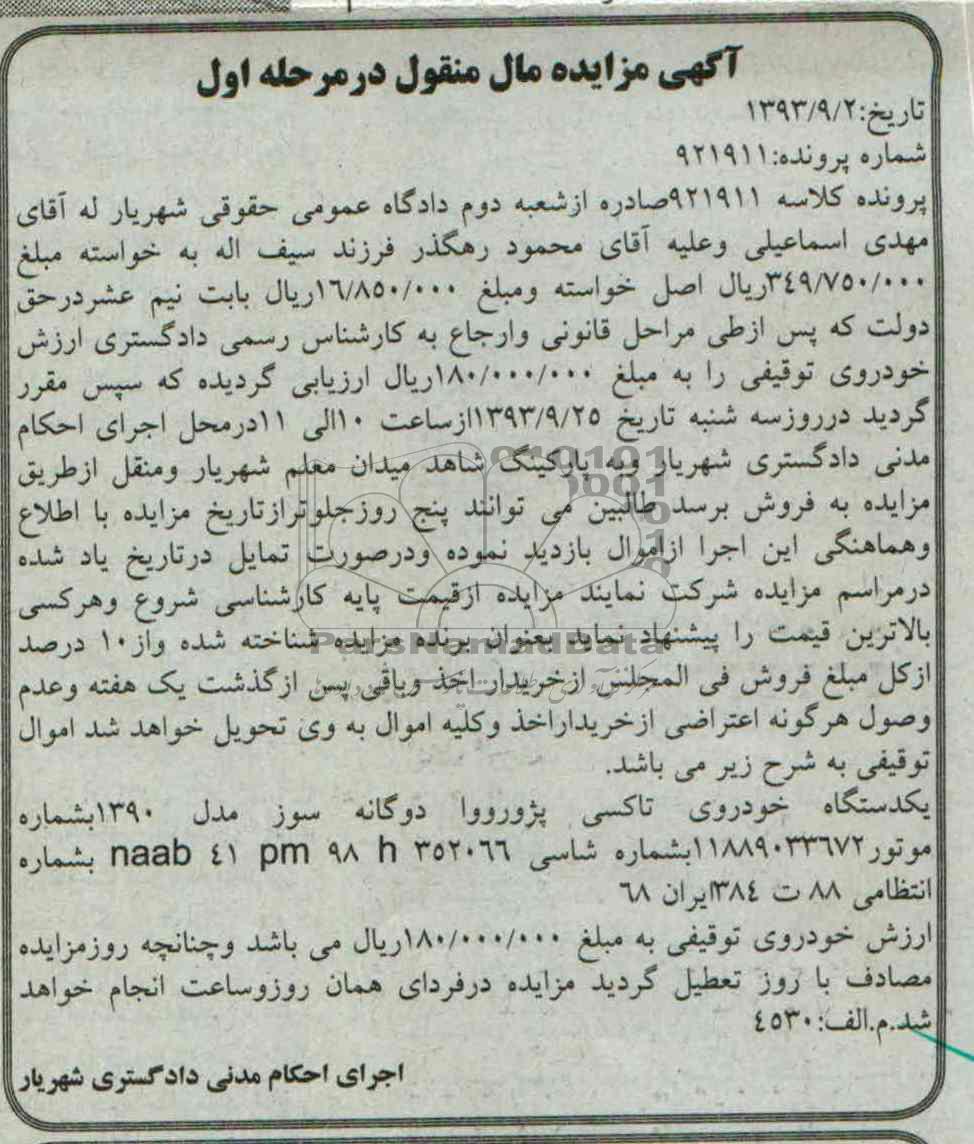 آگهی مزایده مال منقول درمرحله اول
تاریخ:۱۳۹۳/۹/۲
شماره پرونده:۹۲۱۹۱۱
پرونده کلاسه ۹۲۱۹۱۱صادره ازشعبه دوم دادگاه عمومی حقوقی شهریار له آقای
مهدی اسماعیلی وعلیه آقای محمود رهگذر فرزند سیف اله به خواسته مبلغ
۳٤۹/۷٥۰/۰۰۰ریال اصل خواسته ومبلغ ۱٦/۸٥۰/۰۰۰ریال بابت نیم عشردرحق
دولت که پس ازطی مراحل قانونی وارجاع به کارشناس رسمی دادگستری ارزش
خودروی توقیفی را به مبلغ ۱۸۰/۰۰۰/۰۰۰ریال ارزیابی گردیده که سپس مقرر
گردید درروزسه شنبه تاریخ ۱۳۹۳/۹/۲٥ازساعت ۱۰الی ۱۱درمحل اجرای احکام
مدنی دادگستری شهریار وبه پارکینگ شاهد میدان معلم شهریار ومنقل ازطریق
مزایده به فروش برسد طالبین می توانند پنج روزجلوترازتاریخ مزایده با اطلاع
وهماهنگی این اجرا ازاموال بازدید نموده ودرصورت تمایل درتاریخ یاد شده
درمراسم مزایده شرکت نمایند مزایده ازقیمت پایه کارشناسی شروع وهرکسی
بالاترین قیمت را پیشنهاد نماید بعنوان برنده مزایده شناخته شده واز۱۰ درصد
ParsNamadData
ازکل مبلغ فروش فی المجلس ازخریدار اخذ وباقی پس ازگذشت یک هفته وعدم
وصول هرگونه اعتراضی ازخریداراخذ وکلیه اموال به وی تحویل خواهد شد اموال
توقیفی به شرح زیر می باشد.
یکدستگاه خودروی تاکسی پژوروو‌ا دوگانه سوز مدل ۱۳۹۰بشماره
موتور۱۱۸۸۹۰۳۳٦۷۲بشماره شاسی naab ٤۱ pm ۹۸ h ۳٥۲۰٦٦ بشماره
انتظامی ۸۸ ت ۳۸٤ایران ٦۸
ارزش خودروی توقیفی به مبلغ ۱۸۰/۰۰۰/۰۰۰ریال می باشد وچنانچه روزمزایده
مصادف با روز تعطیل گردید مزایده درفردای همان روزوساعت انجام خواهد
شد.م.الف:٤٥۳۰
اجرای احکام مدنی دادگستری شهریار